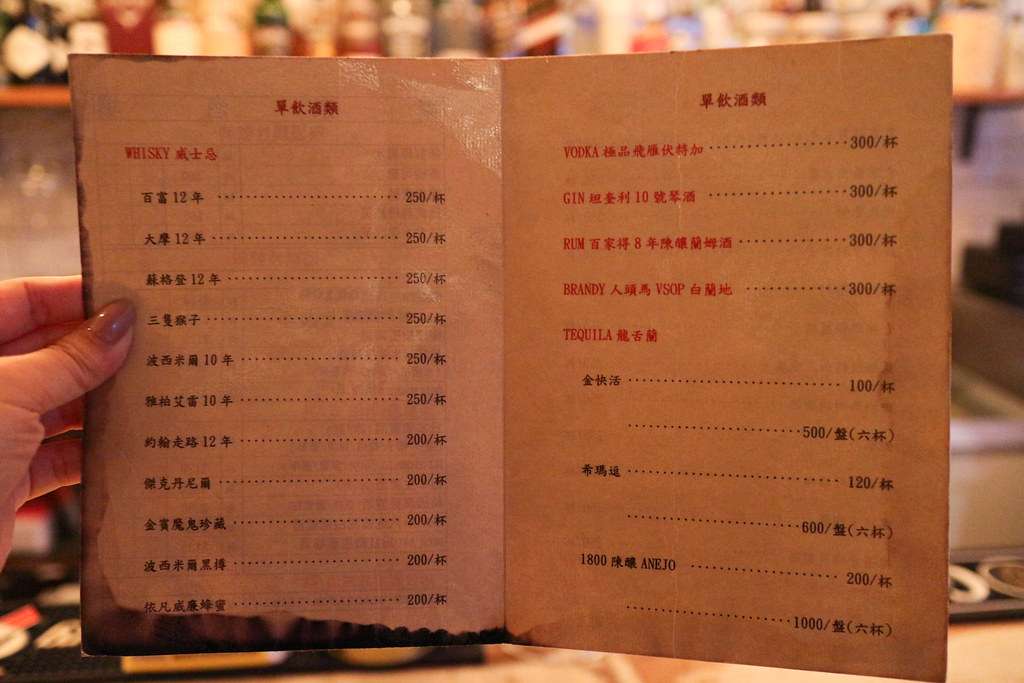 單飲酒類
WHISKY 威士忌
百富 12 年 250/杯
大摩 12 年 250/杯
蘇格登 12 年 250/杯
三隻猴子 250/杯
波西米爾 10 年 250/杯
雅柏艾雷 10 年 250/杯
約翰走路 12 年 200/杯
傑克丹尼爾 200/杯
金賓魔鬼珍藏 200/杯
波西米爾黑樽 200/杯
依凡威廉蜂蜜 200/杯
單飲酒類
VODKA 極品飛雁伏特加 300/杯
GIN 坦奎利 10 號琴酒 300/杯
RUM 百家得 8 年陳釀蘭姆酒 300/杯
BRANDY 人頭馬 VSOP 白蘭地 300/杯
TEQUILA 龍舌蘭
金快活 100/杯
500/盤(六杯)
希瑪逗 120/杯
600/盤(六杯)
1800 陳釀 ANEJO 200/杯
1000/盤(六杯)